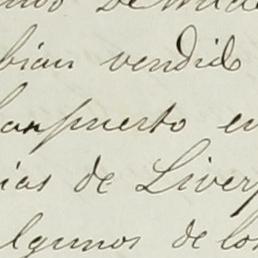 bian vendido
puerto en
ias de Liverp
lgunos de los